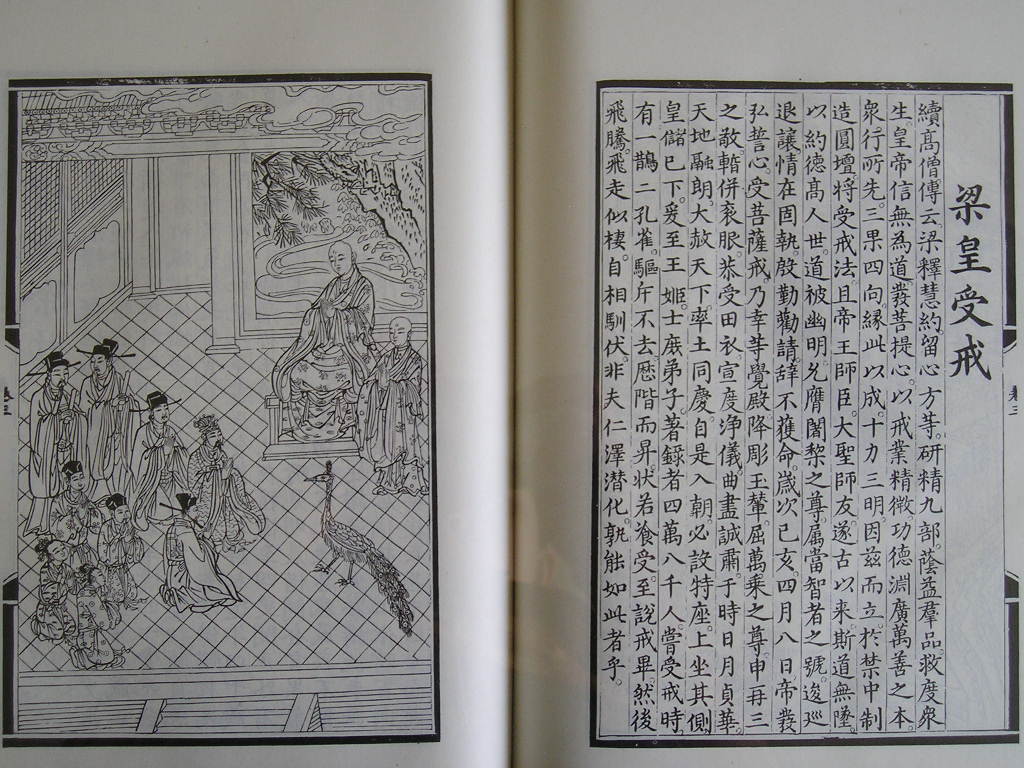 梁皇受戒
續高僧傳云。梁釋慧約。留心方等。研精九部。蔭益羣品。救度衆
生。皇帝信無為道。發菩提心。以戒業精微。功德淵廣。萬善之本。
衆行所先。三果四向。緣此以成。十力三明。因茲而立。於禁中制
造圓壇。將受戒法。且帝王師臣。大聖師友。遂古以來。斯道無墜。
以約德高人世。道被幽明。允膺闍黎之尊。屬當智者之號。逡巡
退讓。情在固執。殷勤勸請。辭不獲命。歲次己亥四月八日。帝發
弘誓心。受菩薩戒。乃幸等覺殿。降彫玉輦。屈萬乘之尊。申再三
之敬。暫併衮服。恭受田衣。宣度淨儀。曲盡誠肅。于時日月貞華。
天地融朗。大赦天下。率土同慶。自是入朝。必設特座。上坐其側。
皇儲已下。爰至王姬。士庶弟子。著錄者四萬八千人。嘗受戒時。
有一鵲二孔雀。驅斥不去。歷階而昇。狀若飡受。至說戒畢。然後
飛騰。飛走似棲。自相馴伏。非夫仁澤潛化。孰能如此者乎。
卷三
卷三